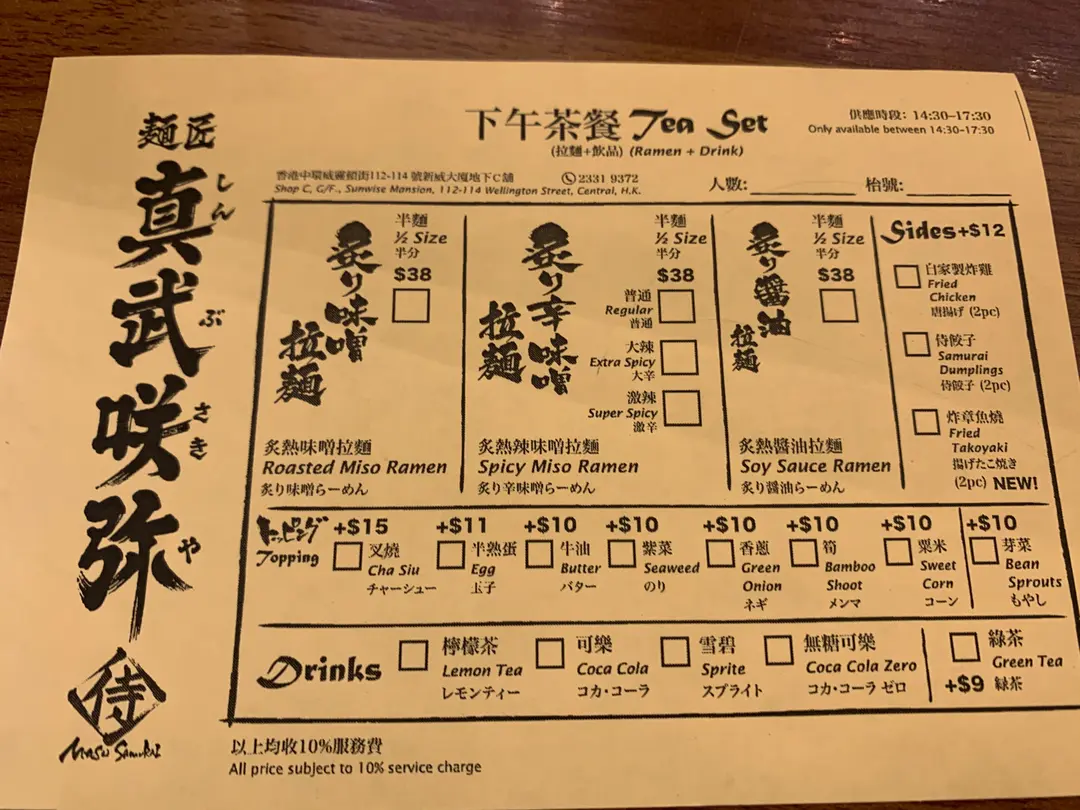 麵匠
真武咲弥
しん
ぶ
さき
や
侍
Masu Samurai
下午茶餐 Tea Set
(拉麵+飲品) (Ramen + Drink)
供應時段: 14:30-17:30
Only available between 14:30-17:30
香港中環威靈頓街112-114 號新威大廈地下C舖
2331 9372
Shop C, G/F., Sunwise Mansion, 112-114 Wellington Street, Central, H.K.
人數:
枱號:
炙り味噌
拉麵
半麵
½ Size
半分
$38
炙熱味噌拉麵
Roasted Miso Ramen
炙り味噌らーめん
炙り辛味噌
拉麵
半麵
½ Size
半分
$38
普通
Regular
普通
大辣
Extra Spicy
大辛
激辣
Super Spicy
激辛
炙熱辣味噌拉麵
Spicy Miso Ramen
炙り辛味噌らーめん
炙り醬油
拉麵
半麵
½ Size
半分
$38
炙熱醬油拉麵
Soy Sauce Ramen
炙り醬油らーめん
Sides+$12
自家製炸雞
Fried
Chicken
唐揚げ (2pc)
侍餃子
Samurai
Dumplings
侍餃子 (2pc)
炸章魚燒
Fried
Takoyaki
揚げたこ焼き
(2pc) NEW!
トッピング
Topping
+$15
叉燒
Cha Siu
チャーシュー
+$11
半熟蛋
Egg
玉子
+$10
牛油
Butter
バター
+$10
紫菜
Seaweed
のり
+$10
香蔥
Green
Onion
ネギ
+$10
筍
Bamboo
Shoot
メンマ
+$10
粟米
Sweet
Corn
コーン
+$10
芽菜
Bean
Sprouts
もやし
Drinks
檸檬茶
Lemon Tea
レモンティー
可樂
Coca Cola
コカ・コーラ
雪碧
Sprite
スプライト
無糖可樂
Coca Cola Zero
コカ・コーラ ゼロ
綠茶
Green Tea
+$9 緑茶
以上均收10%服務費
All price subject to 10% service charge